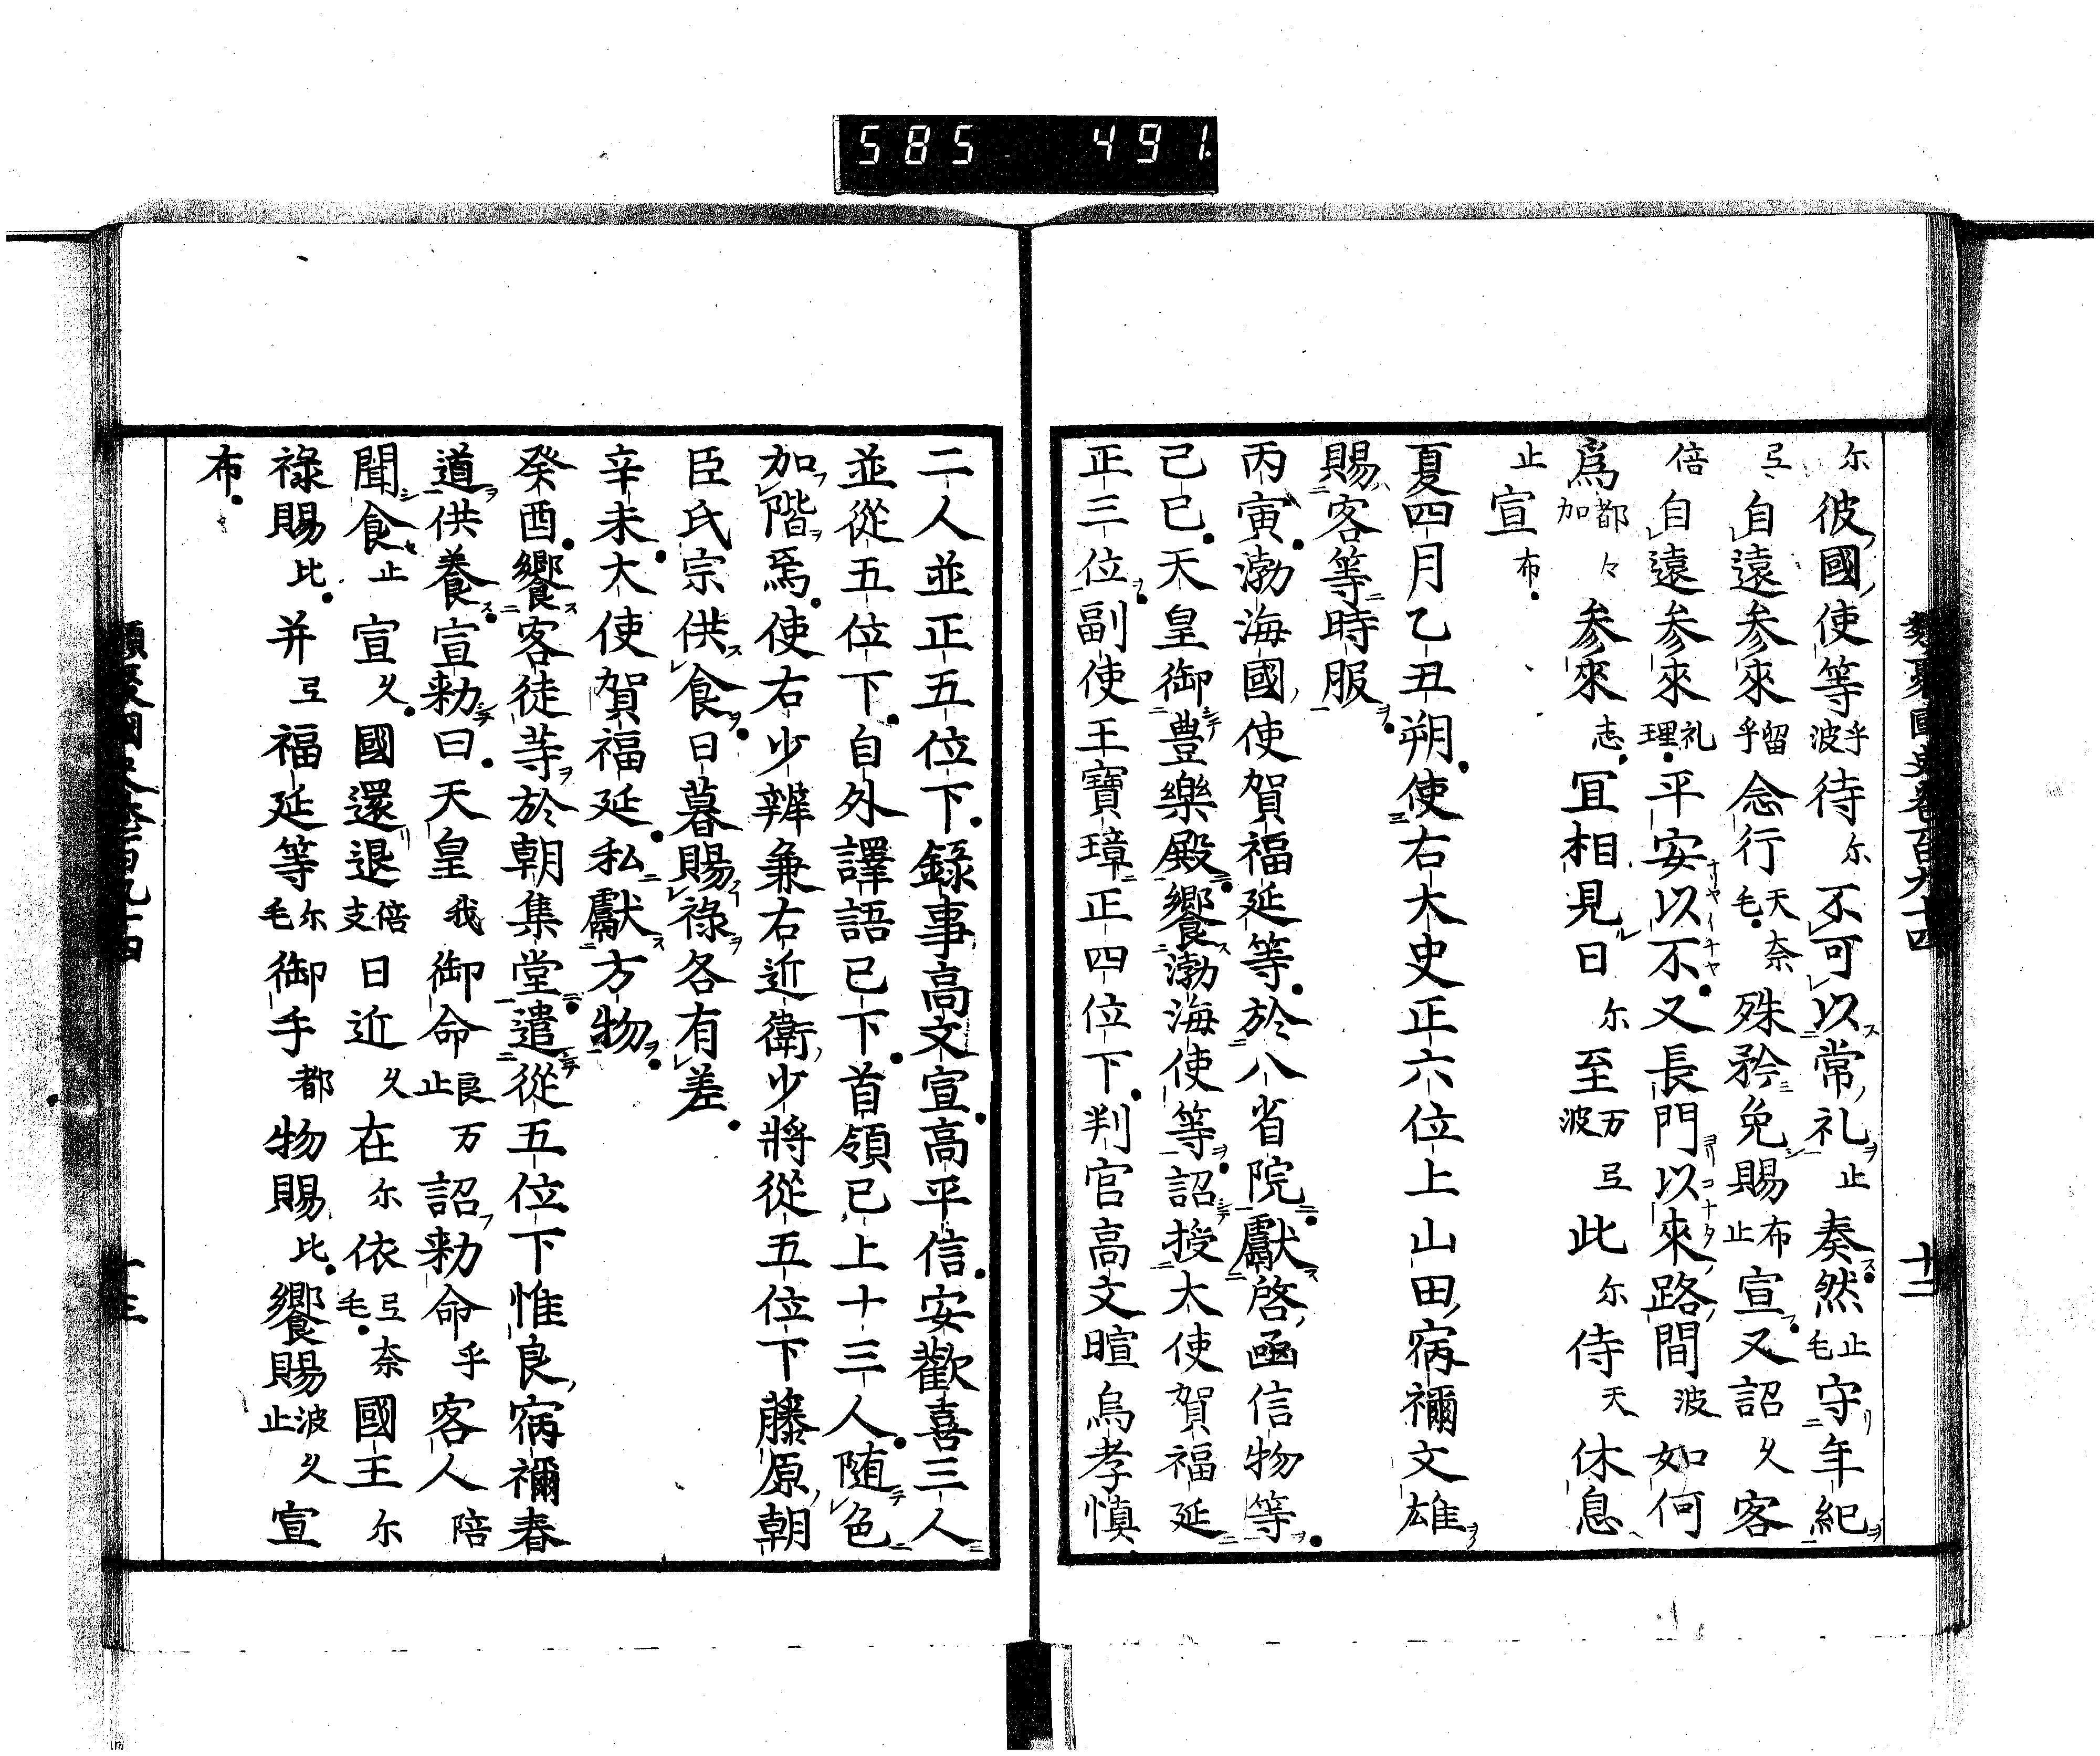 585 491.
類聚國史卷百九十四 十二
尓彼國使等乎波待尓不可以常礼止奏然止毛守年紀
弖自遠参來留乎念行天奈毛殊矜免賜布止宣又詔久客
倍自遠参來礼理平安以不又長門以來路間波如何
爲都加々参來志宜相見日尓至万波弖此尓侍天休息
止宣布
夏四月乙丑朔使右大史正六位上山田宿禰文雄
賜客等時服
丙寅渤海國使賀福延等於八省院獻啓凾信物等
己巳天皇御豊樂殿饗渤海使等詔授大使賀福延
正三位副使王寶璋正四位下判官高文暄烏孝慎
二人並正五位下錄事高文宣高平信安歡喜三人
並從五位下自外譯語已下首領已上十三人随色
加階焉使右少辨兼右近衛少將從五位下藤原朝
臣氏宗供食日暮賜祿各有差
辛未大使賀福延私獻方物
癸酉饗客徒等於朝集堂遣從五位下惟良宿禰春
道供養宣勅曰天皇我御命良止万詔勅命乎客人陪
聞食止宣久國還退倍支日近久在尓依弖奈毛國王尓
祿賜比并弖福延等尓毛御手都物賜比饗賜波久止宣
布
類聚國史卷百九十四 十三